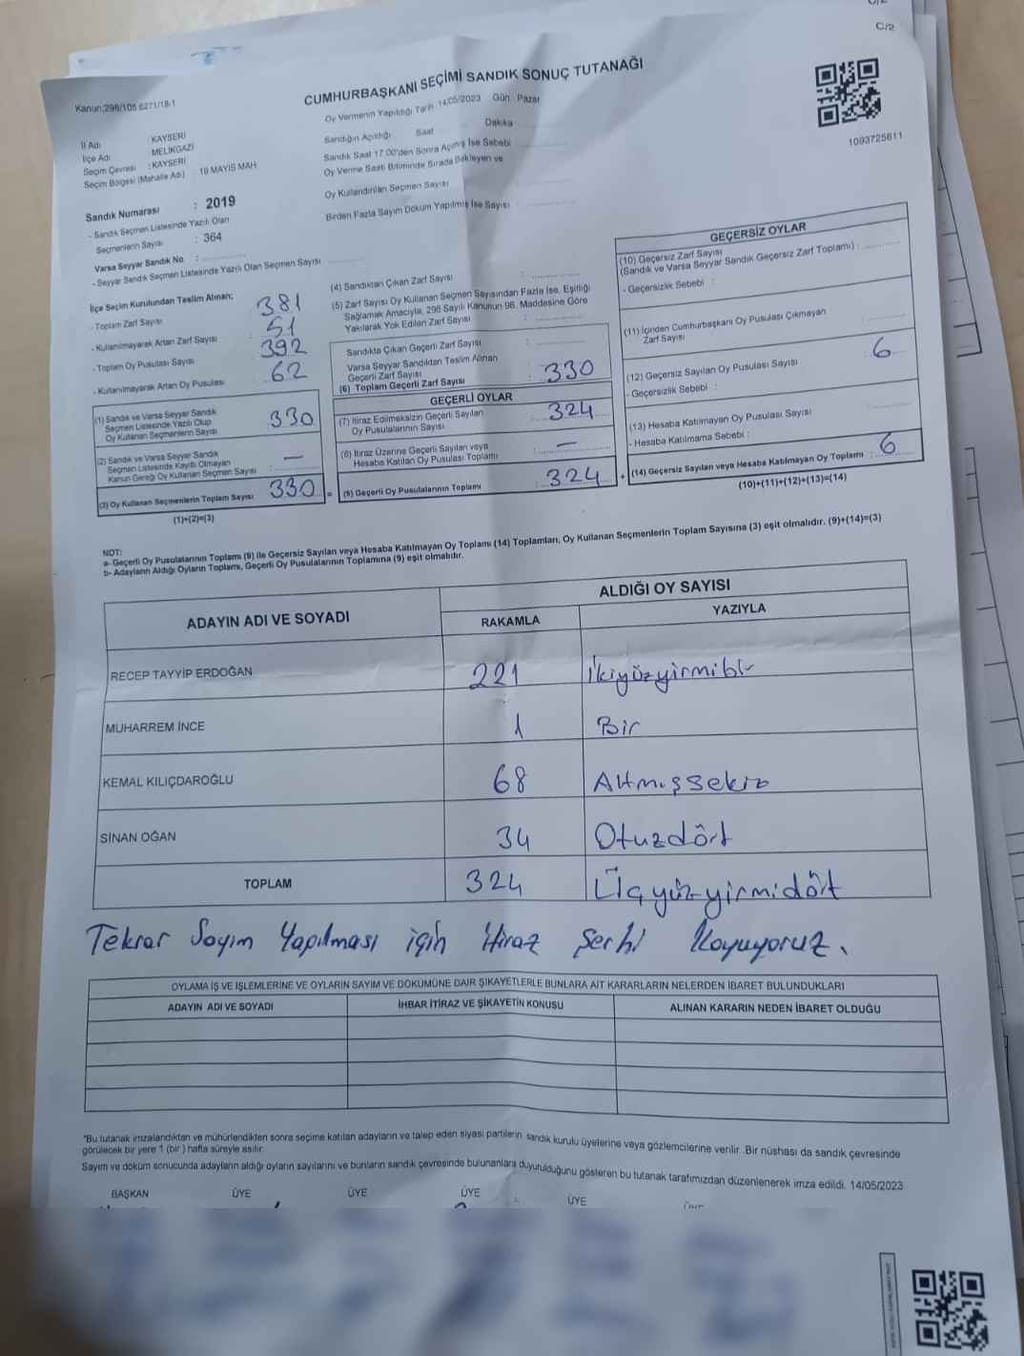 C/2
Kanun:298/105 6271/18-1
CUMHURBAŞKANI SEÇİMİ SANDIK SONUÇ TUTANAĞI
1093725611
İl Adı : KAYSERİ
İlçe Adı : MELİKGAZİ
Seçim Çevresi : KAYSERİ
Seçim Bölgesi (Mahalle Adı) 19 MAYIS MAH
Sandık Numarası : 2019
- Sandık Seçmen Listesinde Yazılı Olan
Seçmenlerin Sayısı : 364
Varsa Seyyar Sandık No :
- Seyyar Sandık Seçmen Listesinde Yazılı Olan Seçmen Sayısı
Oy Vermenin Yapıldığı Tarih 14/05/2023 Gün : Pazar
Sandığın Açıldığı Saat Dakika
Sandık Saat 17.00'den Sonra Açılmış İse Sebebi
Oy Verme Saati Bitiminde Sırada Bekleyen ve
Oy Kullandırılan Seçmen Sayısı
Birden Fazla Sayım Döküm Yapılmış İse Sayısı
İlçe Seçim Kurulundan Teslim Alınan;
- Toplam Zarf Sayısı 381
- Kullanılmayarak Artan Zarf Sayısı 51
- Toplam Oy Pusulası Sayısı 392
- Kullanılmayarak Artan Oy Pusulası 62
(1) Sandık ve Varsa Seyyar Sandık
Seçmen Listesinde Yazılı Olup
Oy Kullanan Seçmenlerin Sayısı : 330
(2) Sandık ve Varsa Seyyar Sandık
Seçmen Listesinde Kayıtlı Olmayan
Kanun Gereği Oy Kullanan Seçmen Sayısı : —
(3) Oy Kullanan Seçmenlerin Toplam Sayısı 330
(1)+(2)=(3)
(4) Sandıktan Çıkan Zarf Sayısı
(5) Zarf Sayısı Oy Kullanan Seçmen Sayısından Fazla İse, Eşitliği
Sağlamak Amacıyla, 298 Sayılı Kanunun 98. Maddesine Göre
Yakılarak Yok Edilen Zarf Sayısı
Sandıkta Çıkan Geçerli Zarf Sayısı
Varsa Seyyar Sandıktan Teslim Alınan
Geçerli Zarf Sayısı
(6) Toplam Geçerli Zarf Sayısı : 330
GEÇERLİ OYLAR
(7) İtiraz Edilmeksizin Geçerli Sayılan
Oy Pusulalarının Sayısı : 324
(8) İtiraz Üzerine Geçerli Sayılan veya
Hesaba Katılan Oy Pusulası Toplamı : —
= (9) Geçerli Oy Pusulalarının Toplamı : 324
GEÇERSİZ OYLAR
(10) Geçersiz Zarf Sayısı
(Sandık ve Varsa Seyyar Sandık Geçersiz Zarf Toplamı) :
- Geçersizlik Sebebi :
(11) İçinden Cumhurbaşkanı Oy Pusulası Çıkmayan
Zarf Sayısı
(12) Geçersiz Sayılan Oy Pusulası Sayısı 6
- Geçersizlik Sebebi :
(13) Hesaba Katılmayan Oy Pusulası Sayısı
- Hesaba Katılmama Sebebi :
+ (14) Geçersiz Sayılan veya Hesaba Katılmayan Oy Toplamı : 6
(10)+(11)+(12)+(13)=(14)
NOT:
a- Geçerli Oy Pusulalarının Toplamı (9) ile Geçersiz Sayılan veya Hesaba Katılmayan Oy Toplamı (14) Toplamları, Oy Kullanan Seçmenlerin Toplam Sayısına (3) eşit olmalıdır. (9)+(14)=(3)
b- Adayların Aldığı Oyların Toplamı, Geçerli Oy Pusulalarının Toplamına (9) eşit olmalıdır.
ADAYIN ADI VE SOYADI ALDIĞI OY SAYISI
RAKAMLA YAZIYLA
RECEP TAYYİP ERDOĞAN 221 İkiyüzyirmibir
MUHARREM İNCE 1 Bir
KEMAL KILIÇDAROĞLU 68 Altmışsekiz
SİNAN OĞAN 34 Otuzdört
TOPLAM 324 Üçyüzyirmidört
Tekrar Sayım Yapılması için itiraz şerhi koyuyoruz.
OYLAMA İŞ VE İŞLEMLERİNE VE OYLARIN SAYIM VE DÖKÜMÜNE DAİR ŞİKAYETLERLE BUNLARA AİT KARARLARIN NELERDEN İBARET BULUNDUKLARI
ADAYIN ADI VE SOYADI İHBAR İTİRAZ VE ŞİKAYETİN KONUSU ALINAN KARARIN NEDEN İBARET OLDUĞU
*Bu tutanak imzalandıktan ve mühürlendikten sonra seçime katılan adayların ve talep eden siyasi partilerin sandık kurulu üyelerine veya gözlemcilerine verilir. Bir nüshası da sandık çevresinde
görülecek bir yere 1 (bir) hafta süreyle asılır.
Sayım ve döküm sonucunda adayların aldığı oyların sayılarını ve bunların sandık çevresinde bulunanlara duyurulduğunu gösteren bu tutanak tarafımızdan düzenlenerek imza edildi. 14/05/2023
BAŞKAN ÜYE ÜYE ÜYE ÜYE